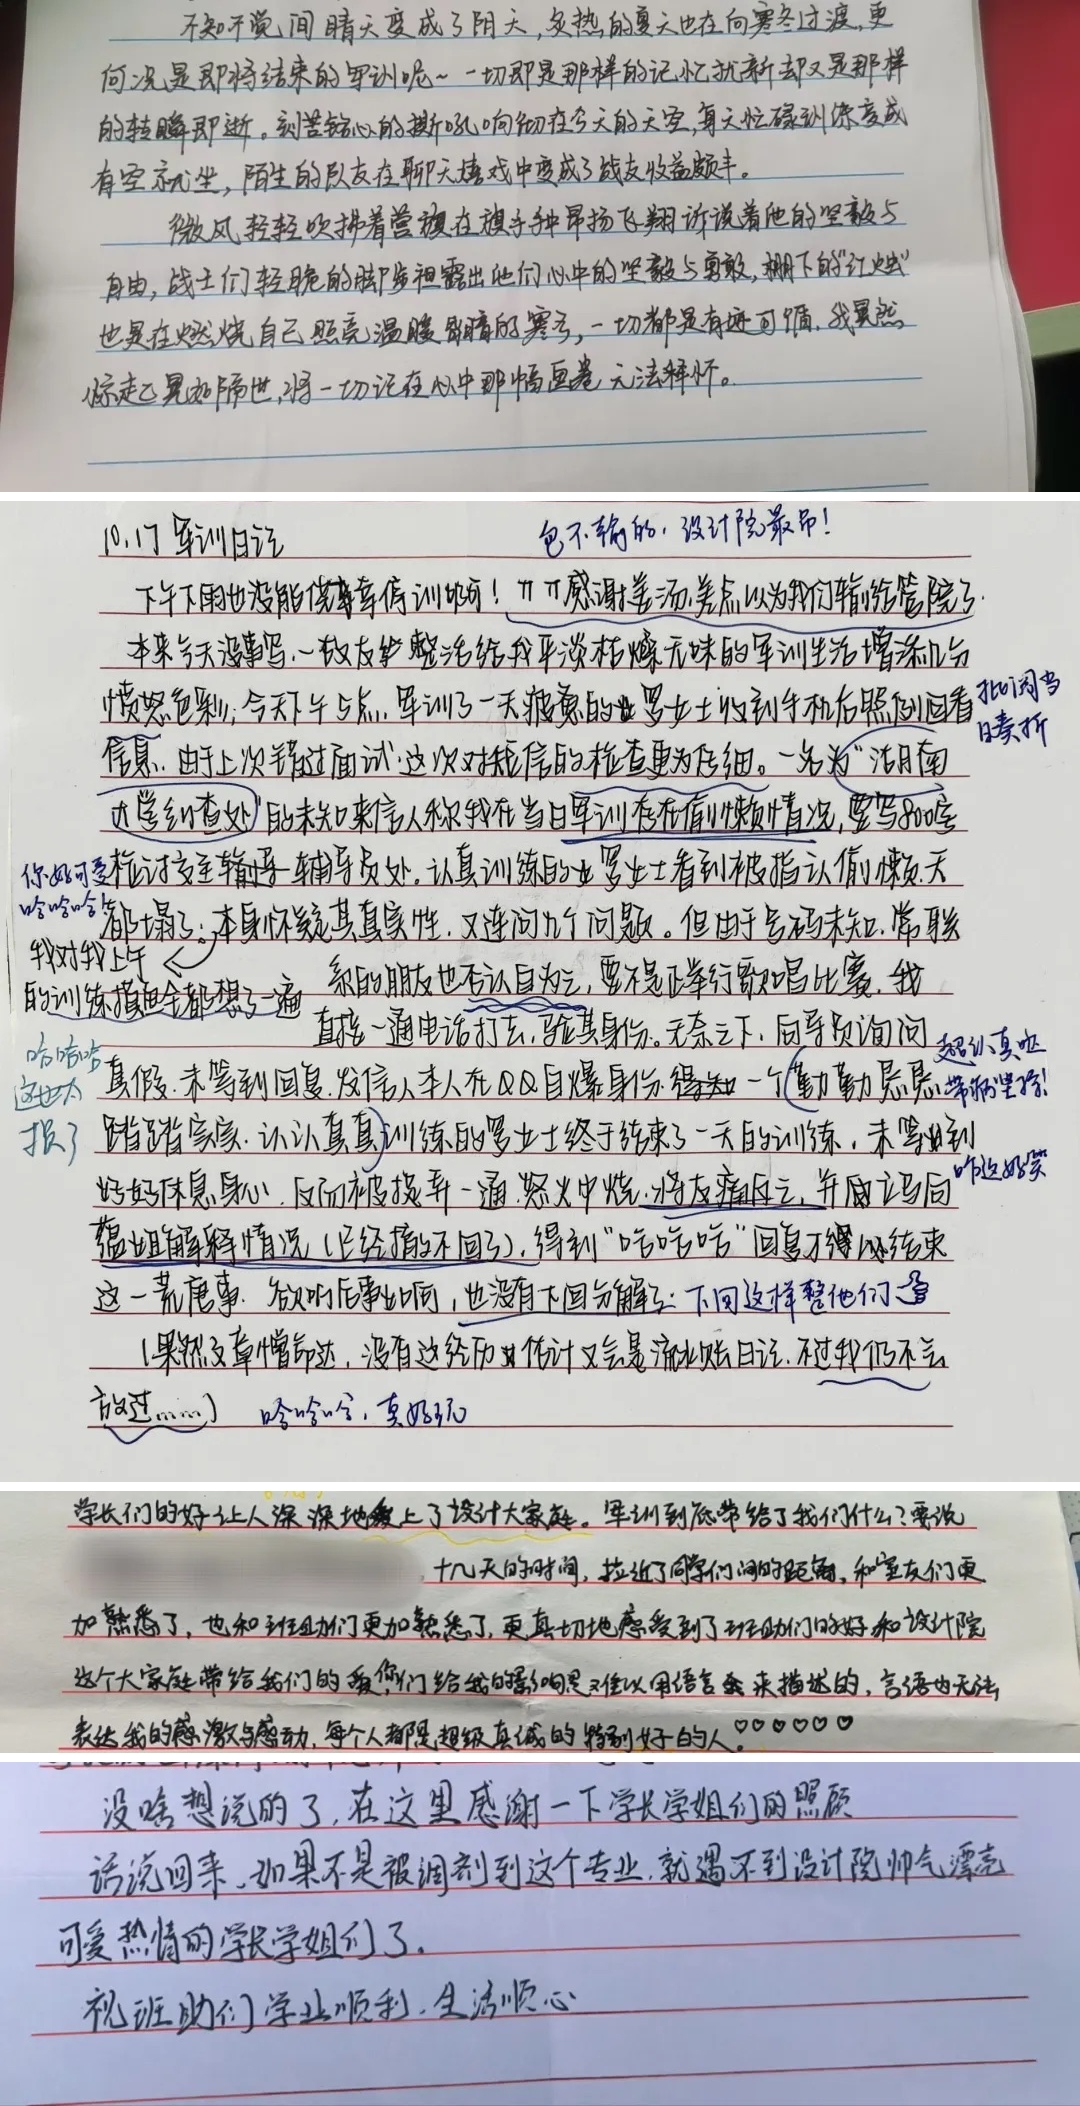 不知不觉间晴天变成了阴天,炙热的夏天也在向寒冬过渡,更
何况是即将结束的军训呢~一切即是那样的记忆犹新却又是那样
的转瞬即逝。刻苦铭心的撕吼响彻在今天的天空,每天忙碌训练变成
有空就坐,陌生的队友在聊天嬉戏中变成了战友收益颇丰。
微风轻轻吹拂着营旗在旗手种昂扬飞翔诉说着他的坚毅与
自由,战士们轻脆的脚步袒露出他们心中的坚毅与勇敢,棚下的“红烛”
也是在燃烧自己照亮温暖 的寒冬,一切都是有迹可循.我晃然
惊起已晃如隔世,将一切记在心中那幅画卷无法释怀。
10.17 军训日记
包不输的,设计院最吊!
下午下雨也没能侥幸停训啊!感谢姜汤.差点以为我们输给管院了.
本来今天没事写,一政友 整活给我平淡枯燥无味的军训生活增添几分
愤怒色彩;今天下午5点.军训了一天疲惫的罗女士收到手机后照例回看
批阅当
日奏折
信息.由于上次错过面试.这次对短信的检查更为仔细。一名为“活月南
大学纠查处”的未知来信人称我在当日军训存在偷懒情况,要写800字
检讨交至辅导员处.认真训练的罗女士看到被指认偷懒.天
你好可爱
哈哈哈哈!
都塌了;本身怀疑其真实性.又连问几个问题。但由于号码未知.常联
我对我上午
的训练摸鱼全都想了一遍
系的朋友也否认自为之,要不是正举行歌唱比赛.我
直接一通电话打去,验其身份.无奈之下.向导员询问
真假.未等到回复.发信人本人在QQ自爆身份.得知一个勤勤恳恳
超认真啦
带病坚持!
哈哈哈
这也太
损了
踏踏实实.认认真真训练的罗女士终于结束了一天的训练,未等到
好好休息身心.反而被捉弄一通.怒火中烧.将友痛斥之,并 让与向
咋这好笑
蕴姐解释情况(已经撤不回了).得到“哈哈哈”回复才得以结束
这一荒唐事.欲听后事如何,也没有下回分解了:下回这样整他们
(果然文章憎命达,没有这经历估计又会是流水账日记.不过我仍不会
放过……)
哈哈哈,真好玩
学长们的好让人深深地爱上了设计大家庭。军训到底带给了我们什么?要说
十几天的时间,拉近了同学们间的距离,和室友们更
加熟悉了,也和班助们更加熟悉了,更真切地感受到了班助们的好和设计院
这个大家庭带给我们的爱,你们给我的影响是难以用语言来描述的,言语也无法
表达我的感激与感动,每个人都是超级真诚的特别好的人。♡♡♡♡♡♡
没啥想说的了,在这里感谢一下学长学姐们的照顾
话说回来、如果不是被调剂到这个专业,就遇不到设计院帅气漂亮
可爱热情的学长学姐们了.
祝班助们学业顺利.生活顺心